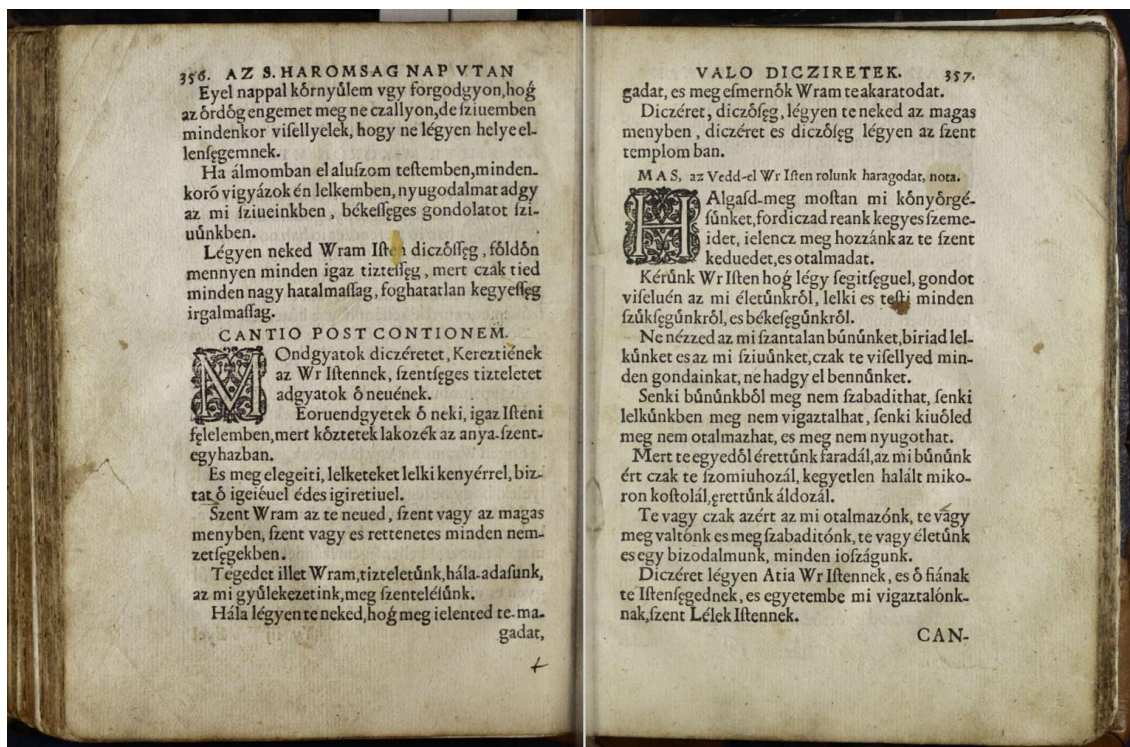 356. AZ S. HAROMSAG NAP VTAN
Eyel nappal kőrnyűlem vgy forgodgyon, hoǵ
az őrdőg engemet meg ne czallyon, de ſziuemben
mindenkor viſellyelek, hogy ne légyen helye el-
lenſęgemnek.
Ha álmomban el aluſzom teſtemben, minden-
koró vigyázok én lelkemben, nyugodalmat adgy
az mi ſziueinkben, békeſſęges gondolatot ſzi-
uűnkben.
Légyen neked Wram Iſten diczőſſęg, főldőn
mennyen minden igaz tizteſſęg, mert czak tied
minden nagy hatalmaſſag, foghatatlan kegyeſſęg
irgalmaſſag.
CANTIO POST CONTIONEM.
MOndgyatok diczéretet, Kereztiének
az Wr Iſtennek, ſzentſęges tizteletet
adgyatok ő neuének.
Eoruendgyetek ő neki, igaz Iſteni
fęlelemben, mert kőztetek lakozék az anya-ſzent-
egyhazban.
Es meg elegeiti, lelketeket lelki kenyérrel, biz-
tat ő igeiéuel édes igiretiuel.
Szent Wram az te neued, ſzent vagy az magas
menyben, ſzent vagy es rettenetes minden nem-
zetſęgekben.
Tegedet illet Wram, tizteletűnk, hála-adaſunk,
az mi gyűlekezetink, meg ſzenteléſűnk.
Hála légyen te neked, hoǵ meg ielented te-ma-
gadat,
VALO DICZIRETEK. 357.
gadat, es meg eſmernők Wram te akaratodat.
Diczéret, diczőſęg, légyen te neked az magas
menyben, diczéret es diczőſęg légyen az ſzent
templom ban.
MAS, az Vedd-el Wr Iſten rolunk haragodat, nota.
HAlgaſd-meg moſtan mi kőnyőrgé-
ſűnket, fordiczad reank kegyes ſzeme-
idet, ielencz meg hozzánk az te ſzent
keduedet, es otalmadat.
Kérűnk Wr Iſten hoǵ légy ſegitſęguel, gondot
viſeluén az mi életűnkről, lelki es teſti minden
ſzűkſęgűnkről, es békeſęgűnkről.
Ne nézzed az mi ſzantalan bűnűnket, biriad lel-
kűnket es az mi ſziuűnket, czak te viſellyed min-
den gondainkat, ne hadgy el bennűnket.
Senki bűnűnkből meg nem ſzabadithat, ſenki
lelkűnkben meg nem vigaztalhat, ſenki kiuőled
meg nem otalmazhat, es meg nem nyugothat.
Mert te egyedől érettűnk faradál, az mi bűnűnk
ért czak te ſzomiuhozál, kegyetlen halált miko-
ron koſtolál, ęrettűnk áldozál.
Te vagy czak azért az mi otalmazónk, te vagy
meg valtónk es meg ſzabaditónk, te vagy életűnk
es egy bizodalmunk, minden ioſzágunk.
Diczéret légyen Atia Wr Iſtennek, es ő fiának
te Iſtenſęgednek, es egyetembe mi vigaztalónk-
nak, ſzent Lélek Iſtennek.
CAN-